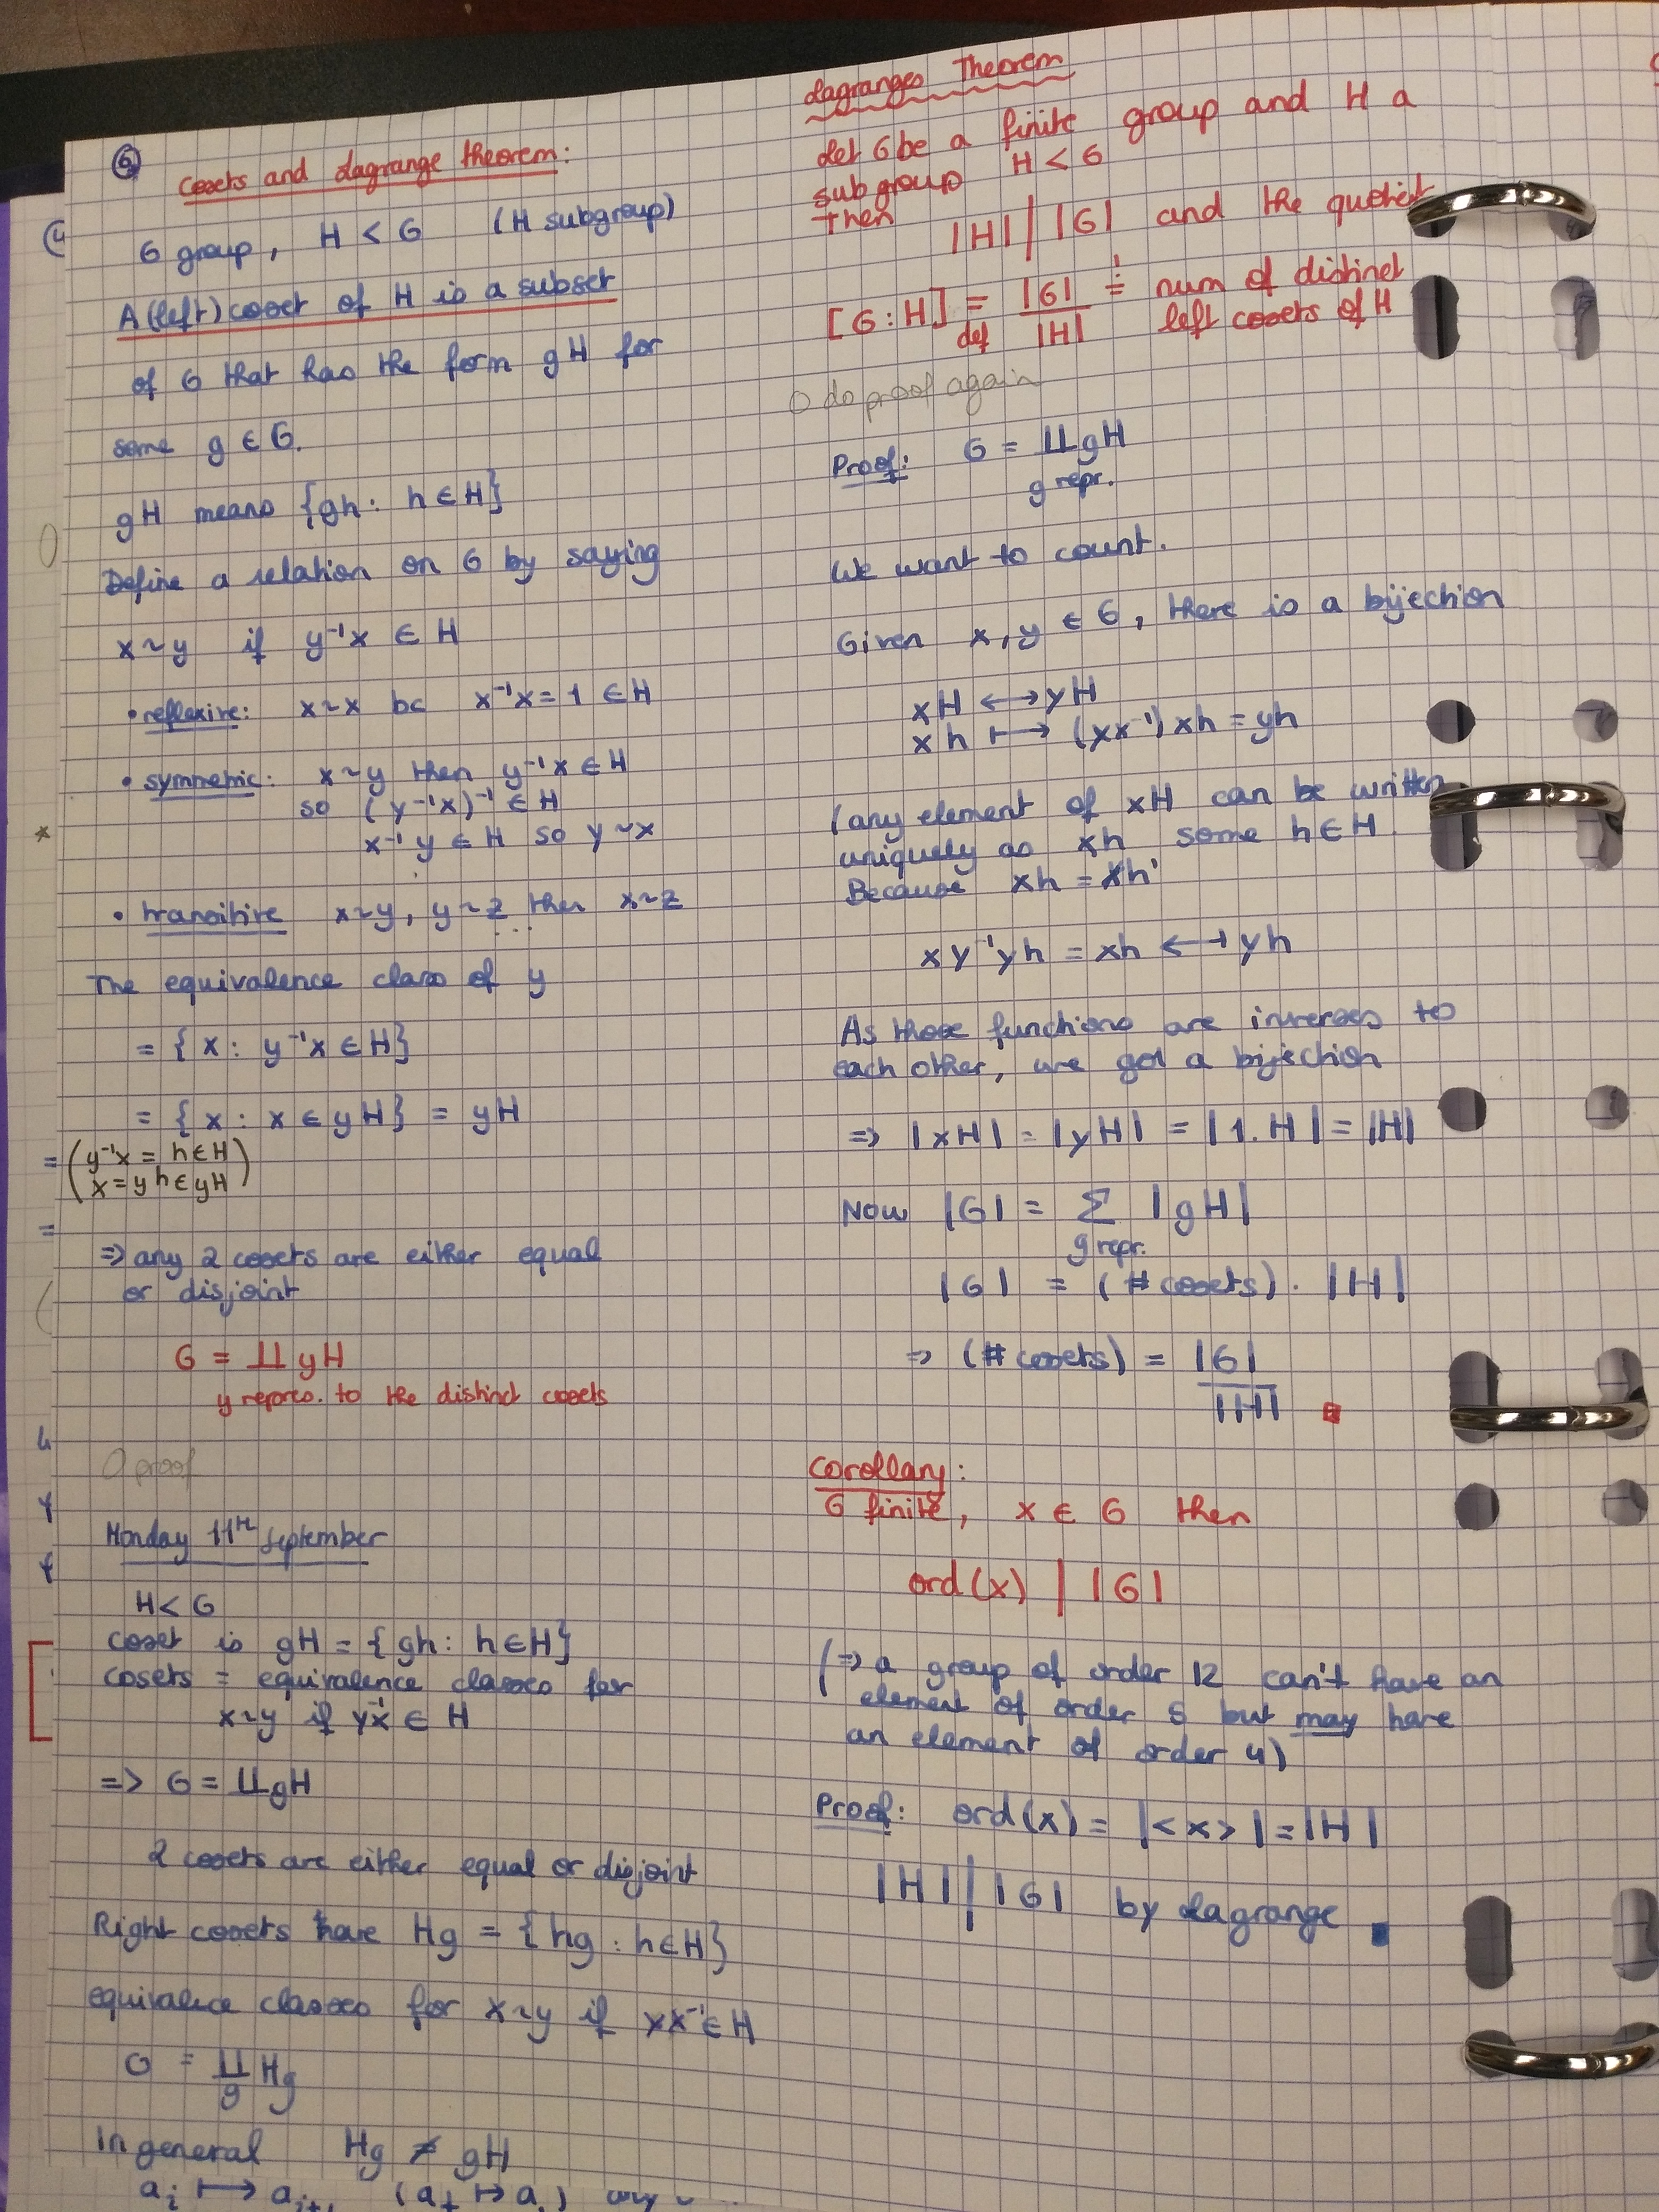 6
Cosets and Lagrange theorem:
G group, H < G (H subgroup)
A (left) coset of H is a subset
of G that has the form gH for
some g ∈ G.
gH means {gh : h ∈ H}
Define a relation on G by saying
x ~ y if y⁻¹x ∈ H
• reflexive: x ~ x bc x⁻¹x = 1 ∈ H
• symmetric: x ~ y then y⁻¹x ∈ H
so (y⁻¹x)⁻¹ ∈ H
x⁻¹y ∈ H so y ~ x
• transitive x ~ y, y ~ z then x ~ z
...
The equivalence class of y
= {x : y⁻¹x ∈ H}
= {x : x ∈ yH} = yH
(y⁻¹x = h ∈ H
x = yh ∈ yH)
=> any 2 cosets are either equal
or disjoint
G = ∐ yH
y repres. to the distinct cosets
O proof
Monday 11th September
H < G
coset is gH = {gh : h ∈ H}
cosets = equivalence classes for
x ~ y if yx⁻¹ ∈ H
=> G = ∐ gH
2 cosets are either equal or disjoint
Right cosets have Hg = {hg : h ∈ H}
equivalence classes for x ~ y if yx⁻¹ ∈ H
G = ∐ Hg
g
In general Hg ≠ gH
aᵢ ↦ aᵢ₊₁
Lagranges Theorem
Let G be a finite group and H a
subgroup H < G
Then
|H| | |G| and the quotient
[G : H] = |G| / |H| = num of distinct
def left cosets of H
O do proof again
Proof: G = ∐ gH
g repr.
We want to count.
Given x, y ∈ G, there is a bijection
xH ⟷ yH
xh ↦ (yx⁻¹)xh = yh
(any element of xH can be written
uniquely as xh some h ∈ H.
Because xh = xh'
xy⁻¹yh = xh ⟷ yh
As those functions are inverses to
each other, we get a bijection
=> |xH| = |yH| = |1.H| = |H|
Now |G| = Σ |gH|
g repr.
|G| = (# cosets) · |H|
=> (# cosets) = |G| / |H|
Corollary:
G finite, x ∈ G then
ord(x) | |G|
(=> a group of order 12 can't have an
element of order 5 but may have
an element of order 4)
Proof: ord(x) = |<x>| = |H|
|H| | |G| by Lagrange